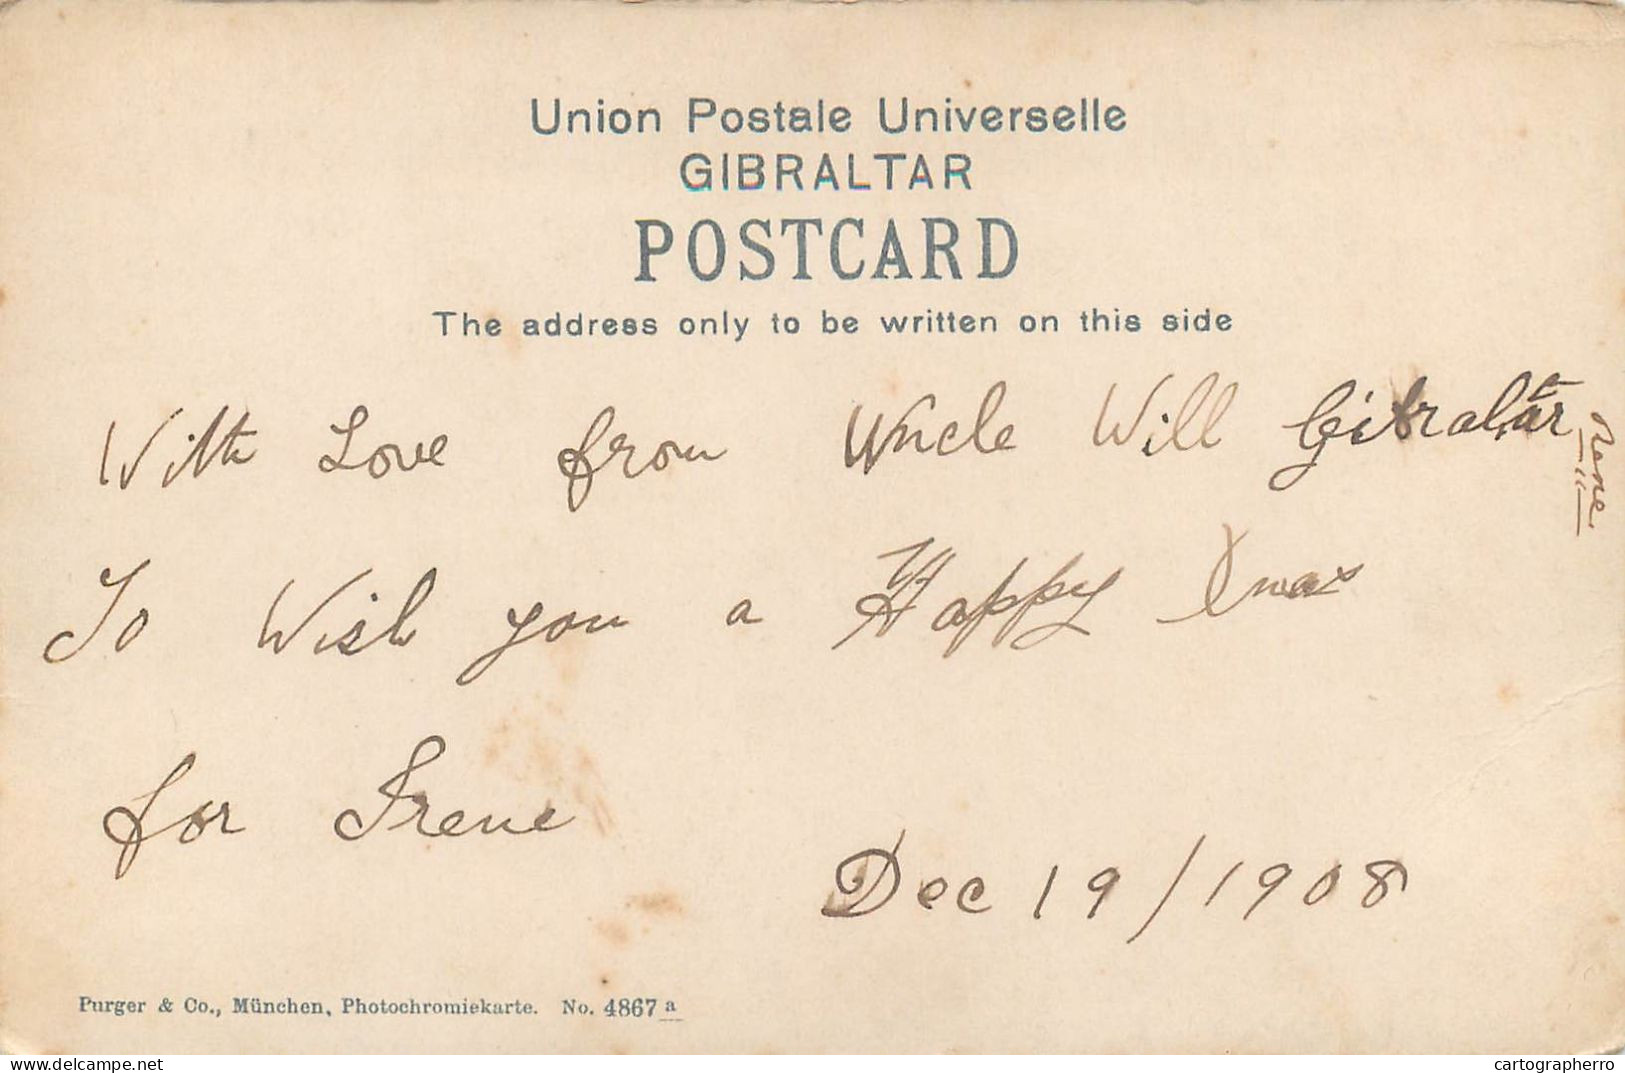 Union Postale Universelle
GIBRALTAR
POSTCARD
The address only to be written on this side
With Love from Uncle Will Gibraltar
Rene
To Wish you a Happy Xmas
for Irene
Dec 19/1908
Purger & Co., München, Photochromiekarte. No. 4867 a
delcampe.net
cartographerro